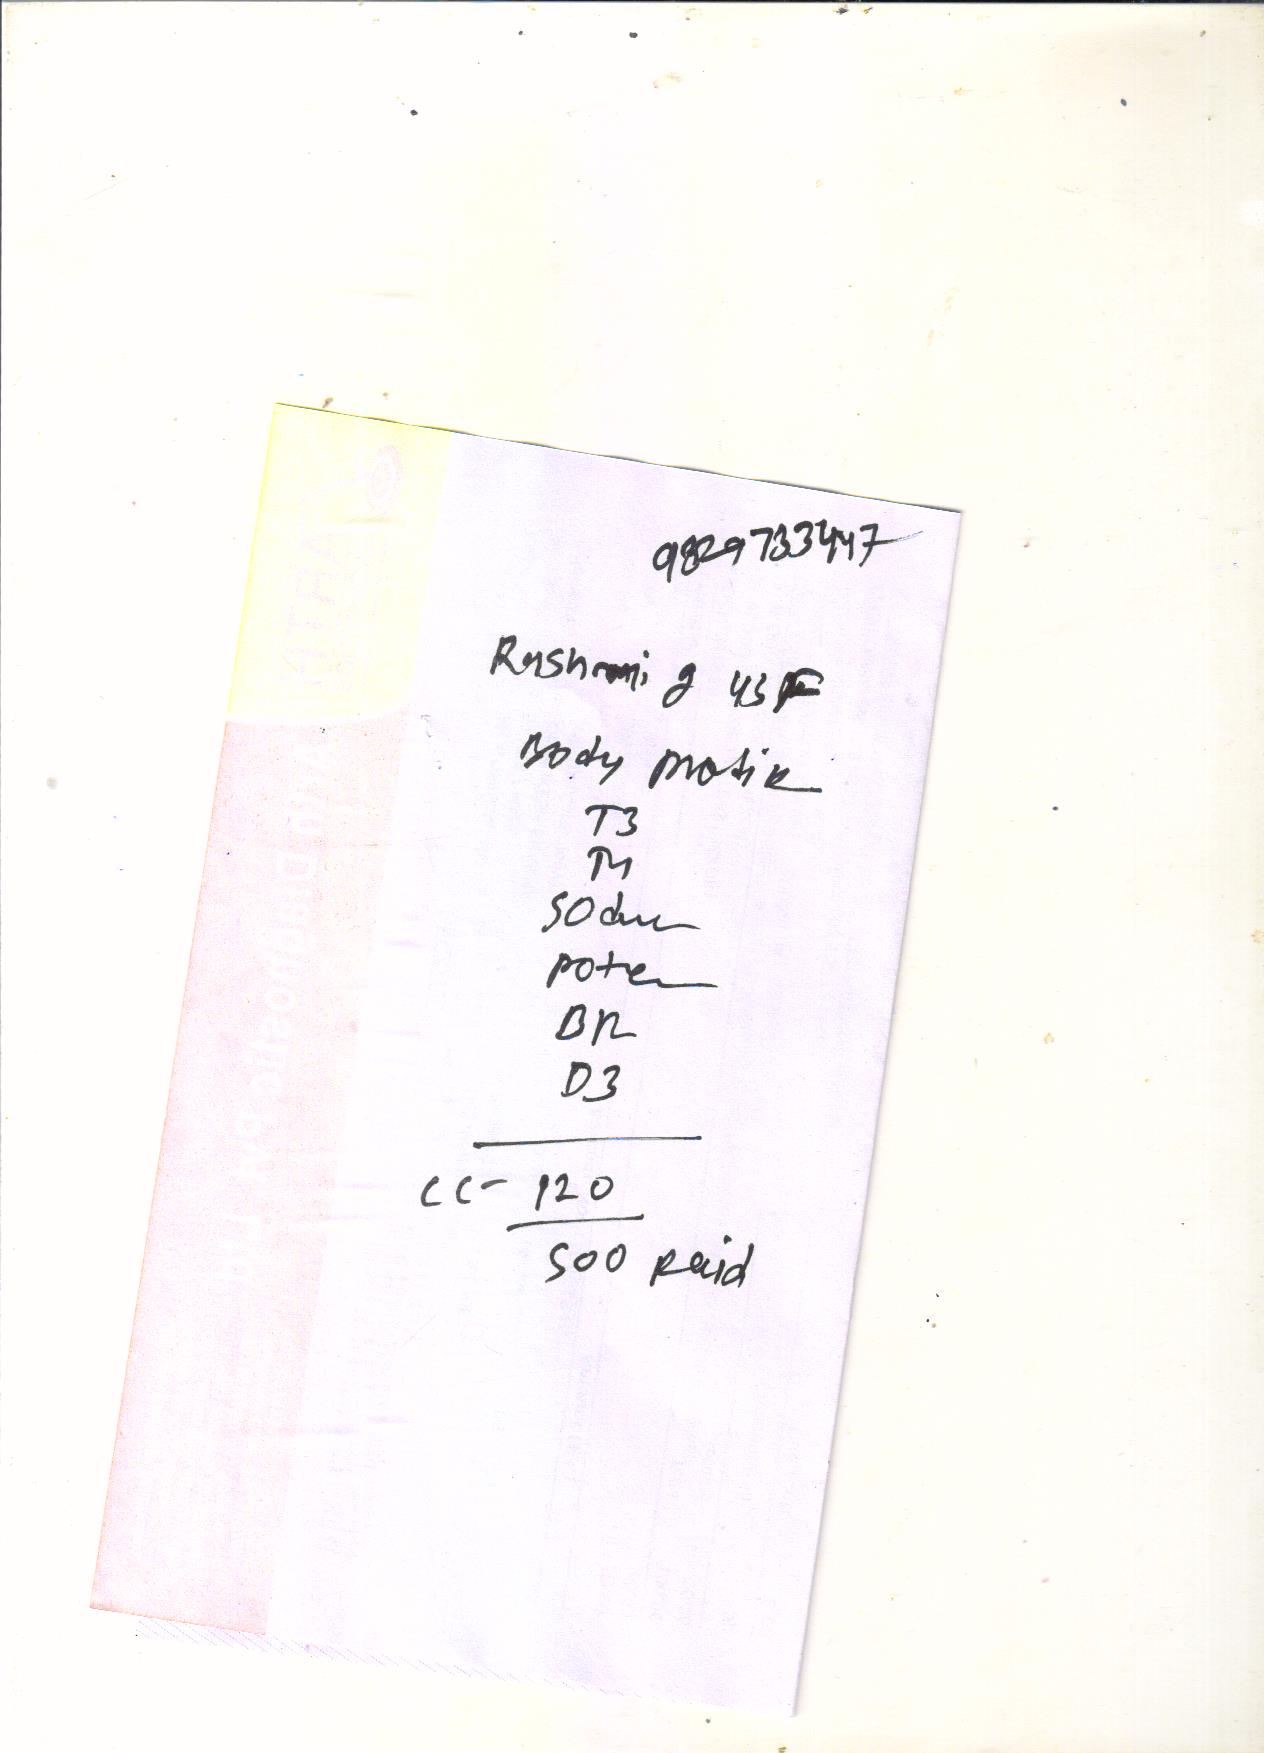 9829733447
Rashmi g 43 F
Body profile
T3
T4
sodu
poten
B12
D3
CC- 120
500 Paid